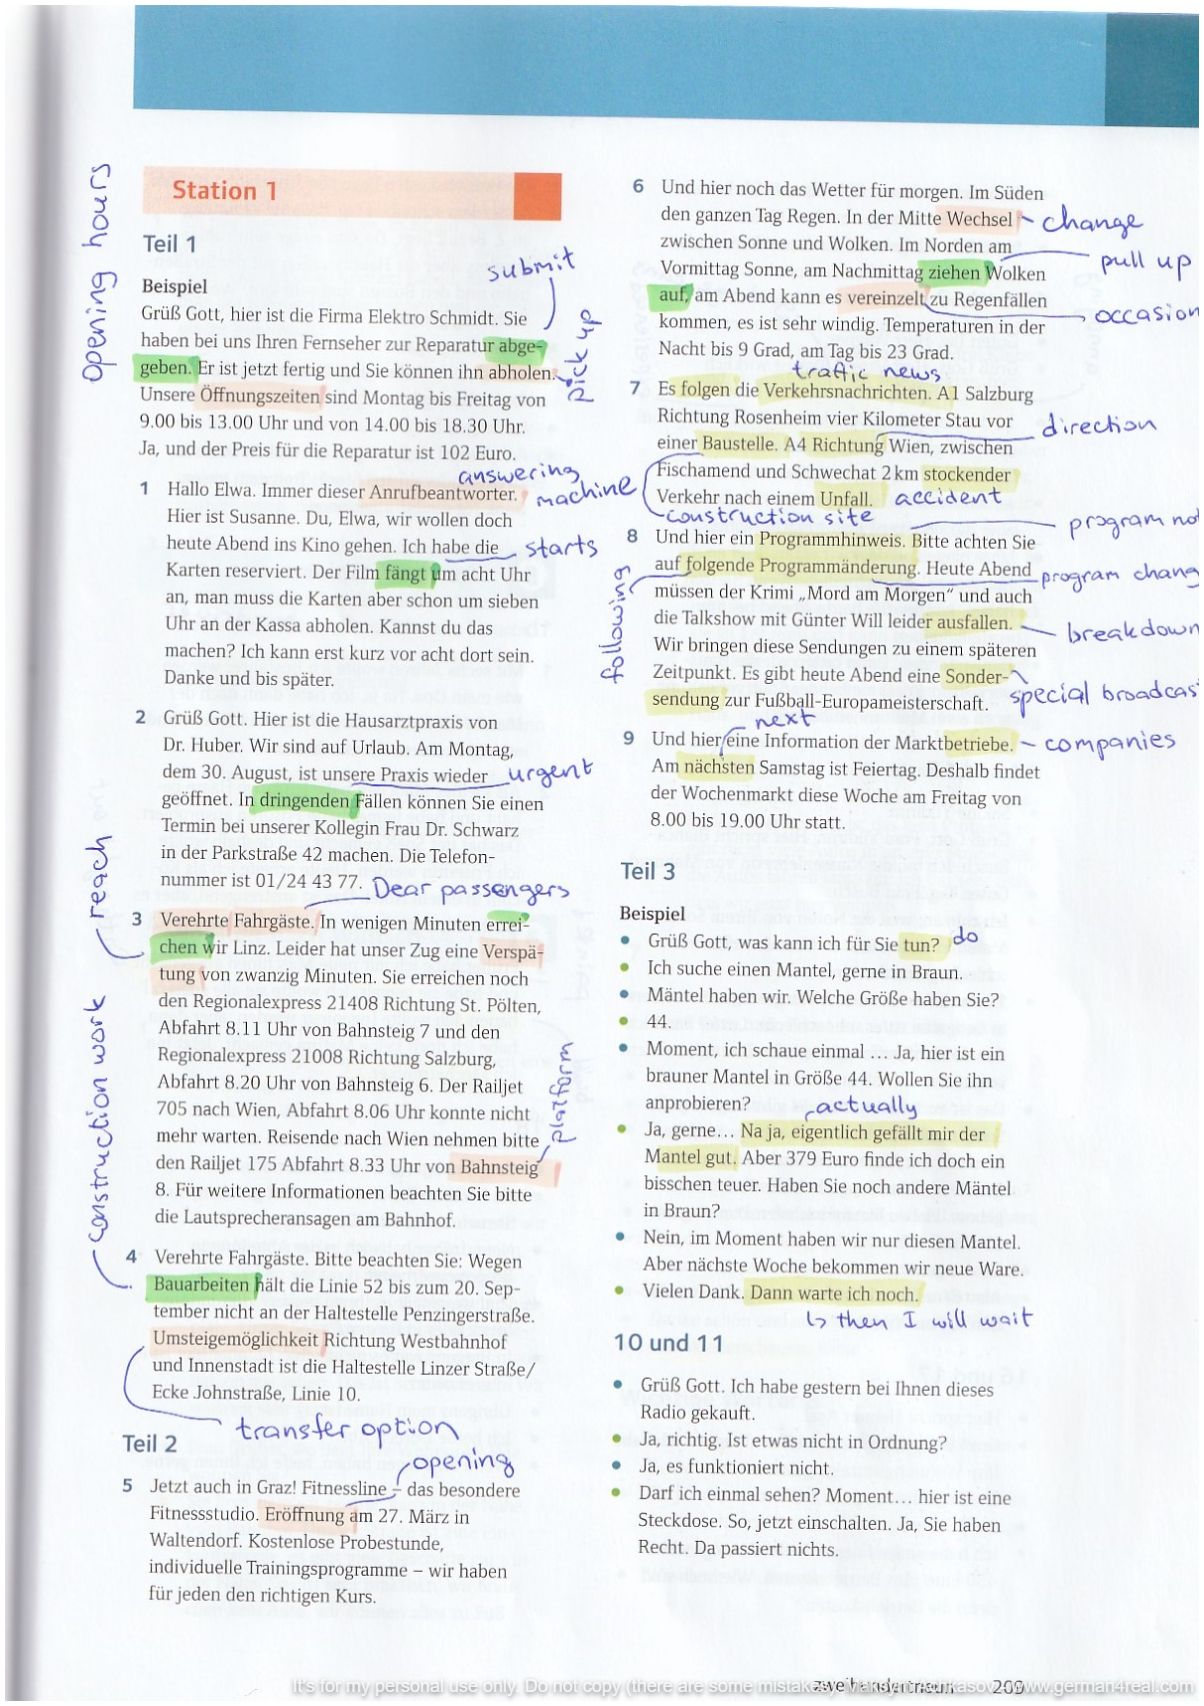 Station 1
opening hours
Teil 1
submit
Beispiel
Grüß Gott, hier ist die Firma Elektro Schmidt. Sie
haben bei uns Ihren Fernseher zur Reparatur abge-
geben. Er ist jetzt fertig und Sie können ihn abholen.
pick up
Unsere Öffnungszeiten sind Montag bis Freitag von
9.00 bis 13.00 Uhr und von 14.00 bis 18.30 Uhr.
Ja, und der Preis für die Reparatur ist 102 Euro.
answering
machine
1 Hallo Elwa. Immer dieser Anrufbeantworter.
Hier ist Susanne. Du, Elwa, wir wollen doch
heute Abend ins Kino gehen. Ich habe die
starts
Karten reserviert. Der Film fängt um acht Uhr
an, man muss die Karten aber schon um sieben
Uhr an der Kassa abholen. Kannst du das
machen? Ich kann erst kurz vor acht dort sein.
Danke und bis später.
2 Grüß Gott. Hier ist die Hausarztpraxis von
Dr. Huber. Wir sind auf Urlaub. Am Montag,
dem 30. August, ist unsere Praxis wieder
urgent
geöffnet. In dringenden Fällen können Sie einen
Termin bei unserer Kollegin Frau Dr. Schwarz
in der Parkstraße 42 machen. Die Telefon-
nummer ist 01/24 43 77.
Dear passengers
reach
3 Verehrte Fahrgäste. In wenigen Minuten errei-
chen wir Linz. Leider hat unser Zug eine Verspä-
tung von zwanzig Minuten. Sie erreichen noch
den Regionalexpress 21408 Richtung St. Pölten,
Abfahrt 8.11 Uhr von Bahnsteig 7 und den
Regionalexpress 21008 Richtung Salzburg,
Abfahrt 8.20 Uhr von Bahnsteig 6. Der Railjet
705 nach Wien, Abfahrt 8.06 Uhr konnte nicht
mehr warten. Reisende nach Wien nehmen bitte
platform
den Railjet 175 Abfahrt 8.33 Uhr von Bahnsteig
8. Für weitere Informationen beachten Sie bitte
die Lautsprecheransagen am Bahnhof.
construction work
4 Verehrte Fahrgäste. Bitte beachten Sie: Wegen
Bauarbeiten hält die Linie 52 bis zum 20. Sep-
tember nicht an der Haltestelle Penzingerstraße.
Umsteigemöglichkeit Richtung Westbahnhof
und Innenstadt ist die Haltestelle Linzer Straße/
Ecke Johnstraße, Linie 10.
transfer option
Teil 2
opening
5 Jetzt auch in Graz! Fitnessline – das besondere
Fitnessstudio. Eröffnung am 27. März in
Waltendorf. Kostenlose Probestunde,
individuelle Trainingsprogramme – wir haben
für jeden den richtigen Kurs.
6 Und hier noch das Wetter für morgen. Im Süden
den ganzen Tag Regen. In der Mitte Wechsel
change
zwischen Sonne und Wolken. Im Norden am
pull up
Vormittag Sonne, am Nachmittag ziehen Wolken
auf, am Abend kann es vereinzelt zu Regenfällen
occasion
kommen, es ist sehr windig. Temperaturen in der
Nacht bis 9 Grad, am Tag bis 23 Grad.
traffic news
7 Es folgen die Verkehrsnachrichten. A1 Salzburg
Richtung Rosenheim vier Kilometer Stau vor
direction
einer Baustelle. A4 Richtung Wien, zwischen
Fischamend und Schwechat 2 km stockender
Verkehr nach einem Unfall.
accident
construction site
program not
8 Und hier ein Programmhinweis. Bitte achten Sie
auf folgende Programmänderung. Heute Abend
program chang
following
müssen der Krimi „Mord am Morgen“ und auch
die Talkshow mit Günter Will leider ausfallen.
breakdown
Wir bringen diese Sendungen zu einem späteren
Zeitpunkt. Es gibt heute Abend eine Sonder-
sendung zur Fußball-Europameisterschaft.
special broadcast
next
9 Und hier eine Information der Marktbetriebe.
companies
Am nächsten Samstag ist Feiertag. Deshalb findet
der Wochenmarkt diese Woche am Freitag von
8.00 bis 19.00 Uhr statt.
Teil 3
Beispiel
• Grüß Gott, was kann ich für Sie tun?
do
• Ich suche einen Mantel, gerne in Braun.
• Mäntel haben wir. Welche Größe haben Sie?
• 44.
• Moment, ich schaue einmal … Ja, hier ist ein
brauner Mantel in Größe 44. Wollen Sie ihn
anprobieren?
actually
• Ja, gerne… Na ja, eigentlich gefällt mir der
Mantel gut. Aber 379 Euro finde ich doch ein
bisschen teuer. Haben Sie noch andere Mäntel
in Braun?
• Nein, im Moment haben wir nur diesen Mantel.
Aber nächste Woche bekommen wir neue Ware.
• Vielen Dank. Dann warte ich noch.
then I will wait
10 und 11
• Grüß Gott. Ich habe gestern bei Ihnen dieses
Radio gekauft.
• Ja, richtig. Ist etwas nicht in Ordnung?
• Ja, es funktioniert nicht.
• Darf ich einmal sehen? Moment… hier ist eine
Steckdose. So, jetzt einschalten. Ja, Sie haben
Recht. Da passiert nichts.
zweihundertneun 209
It's for my personal use only. Do not copy (there are some mistakes www.german4real.com